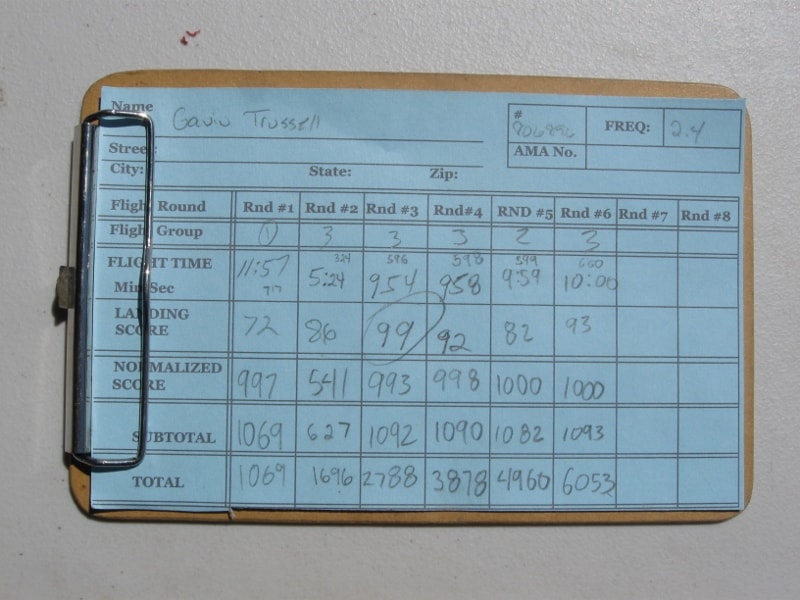 Name Gavin Trussell # 906896 FREQ: 2.4
Street: AMA No.
City: State: Zip:
Flight Round Rnd #1 Rnd #2 Rnd #3 Rnd#4 RND #5 Rnd #6 Rnd #7 Rnd #8
Flight Group 1 3 3 3 2 3
FLIGHT TIME 324 596 598 599 600
Min:Sec 11:57 5:24 954 958 9:59 10:00
717
LANDING
SCORE 72 86 99 92 82 93
NORMALIZED
SCORE 997 541 993 998 1000 1000
SUBTOTAL 1069 627 1092 1090 1082 1093
TOTAL 1069 1696 2788 3878 4960 6053